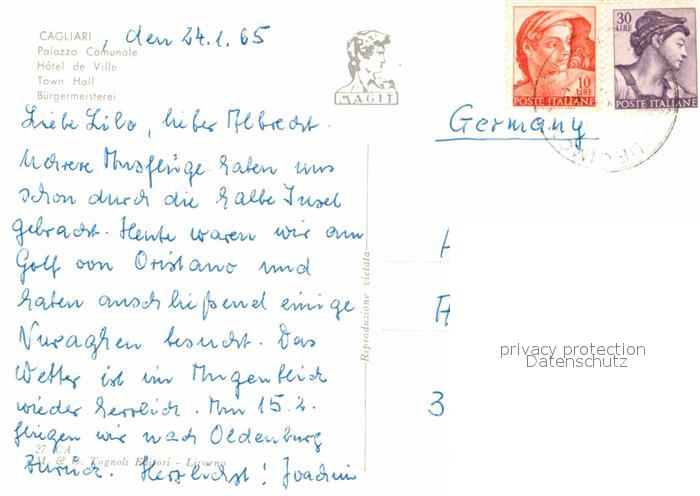 CAGLIARI, den 24.1.65
Palazzo Comunale
Hôtel de Ville
Town Hall
Bürgermeisterei
MAGIT
10 LIRE
POSTE ITALIANE
30 LIRE
POSTE ITALIANE
DECIMO
Liebe Lilo, lieber Albrecht.
Unsere Ausflüge haben uns
schon durch die halbe Insel
gebracht. Heute waren wir am
Golf von Oristano und
haben anschließend einige
Nuraghen besucht. Das
Wetter ist im Augenblick
wieder herrlich. Am 15.2.
fliegen wir nach Oldenburg
zurück. Herzlichst! Joachim
27 CA
M. & B. Tognoli Editori - Livorno
Riproduzione vietata
Germany
A
A
3
privacy protection
Datenschutz